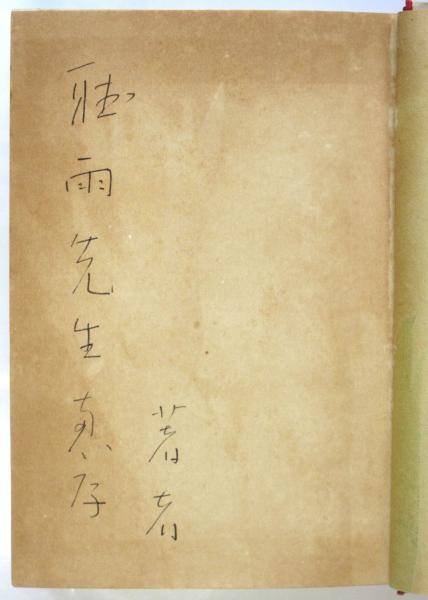 聴雨先生恵存
著者